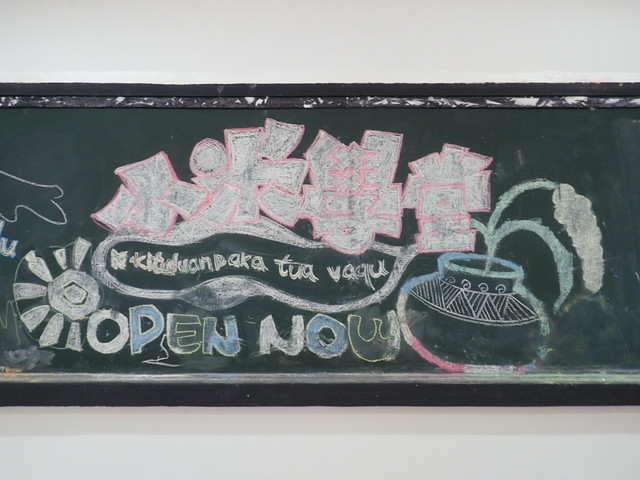 小米學堂
tua vaqu
OPEN NOW